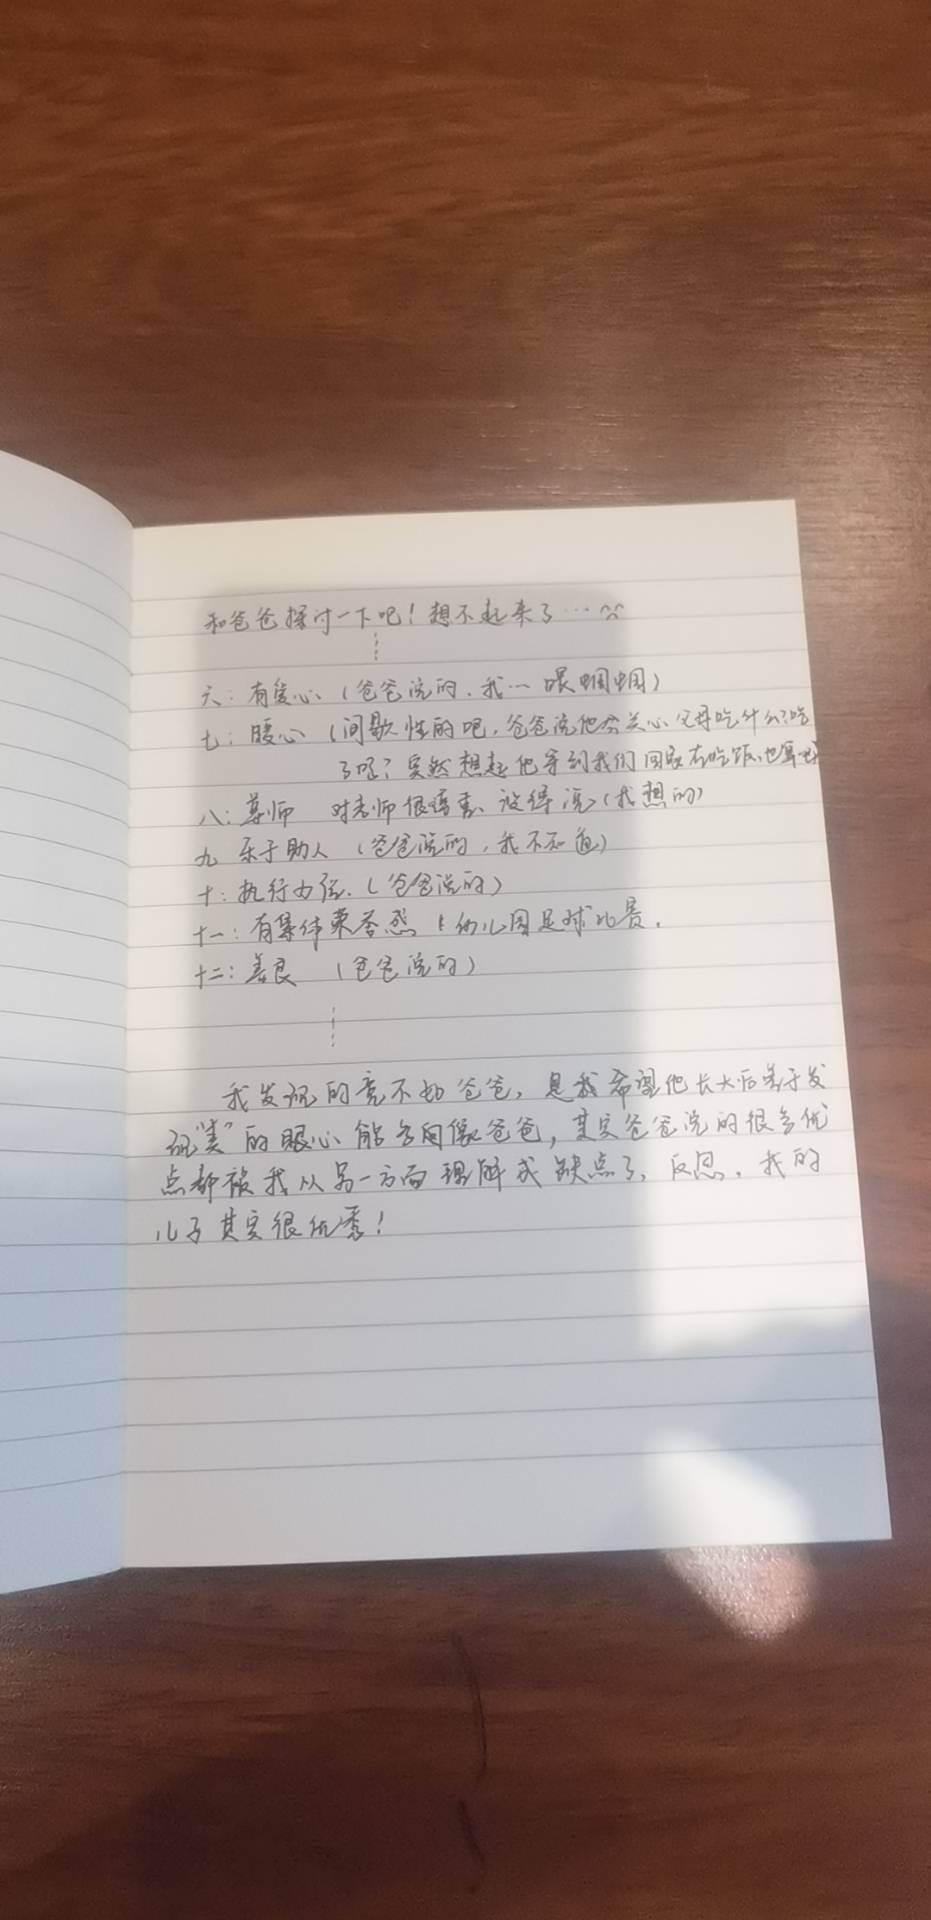 和爸爸探讨一下吧！想不起来了…
六：有爱心（爸爸说的，我…喂蝈蝈）
七：暖心（间歇性的吧，爸爸说他会关心父母吃什么？吃
了呢？突然想起他等到我们回家在吃饭，也算吧
八：尊师 对老师很 没得说（我想的）
九 乐于助人（爸爸说的，我不知道）
十：执行力强．（爸爸说的）
十一：有集体荣誉感 幼儿园足球比赛．
十二：善良 （爸爸说的）
我发现的竟不如爸爸，是我希望他长大后善于发
现“美”的眼心能 像爸爸，其实爸爸说的很多优
点都被我从另一方面理解成缺点了，反思，我的
儿子其实很优秀！